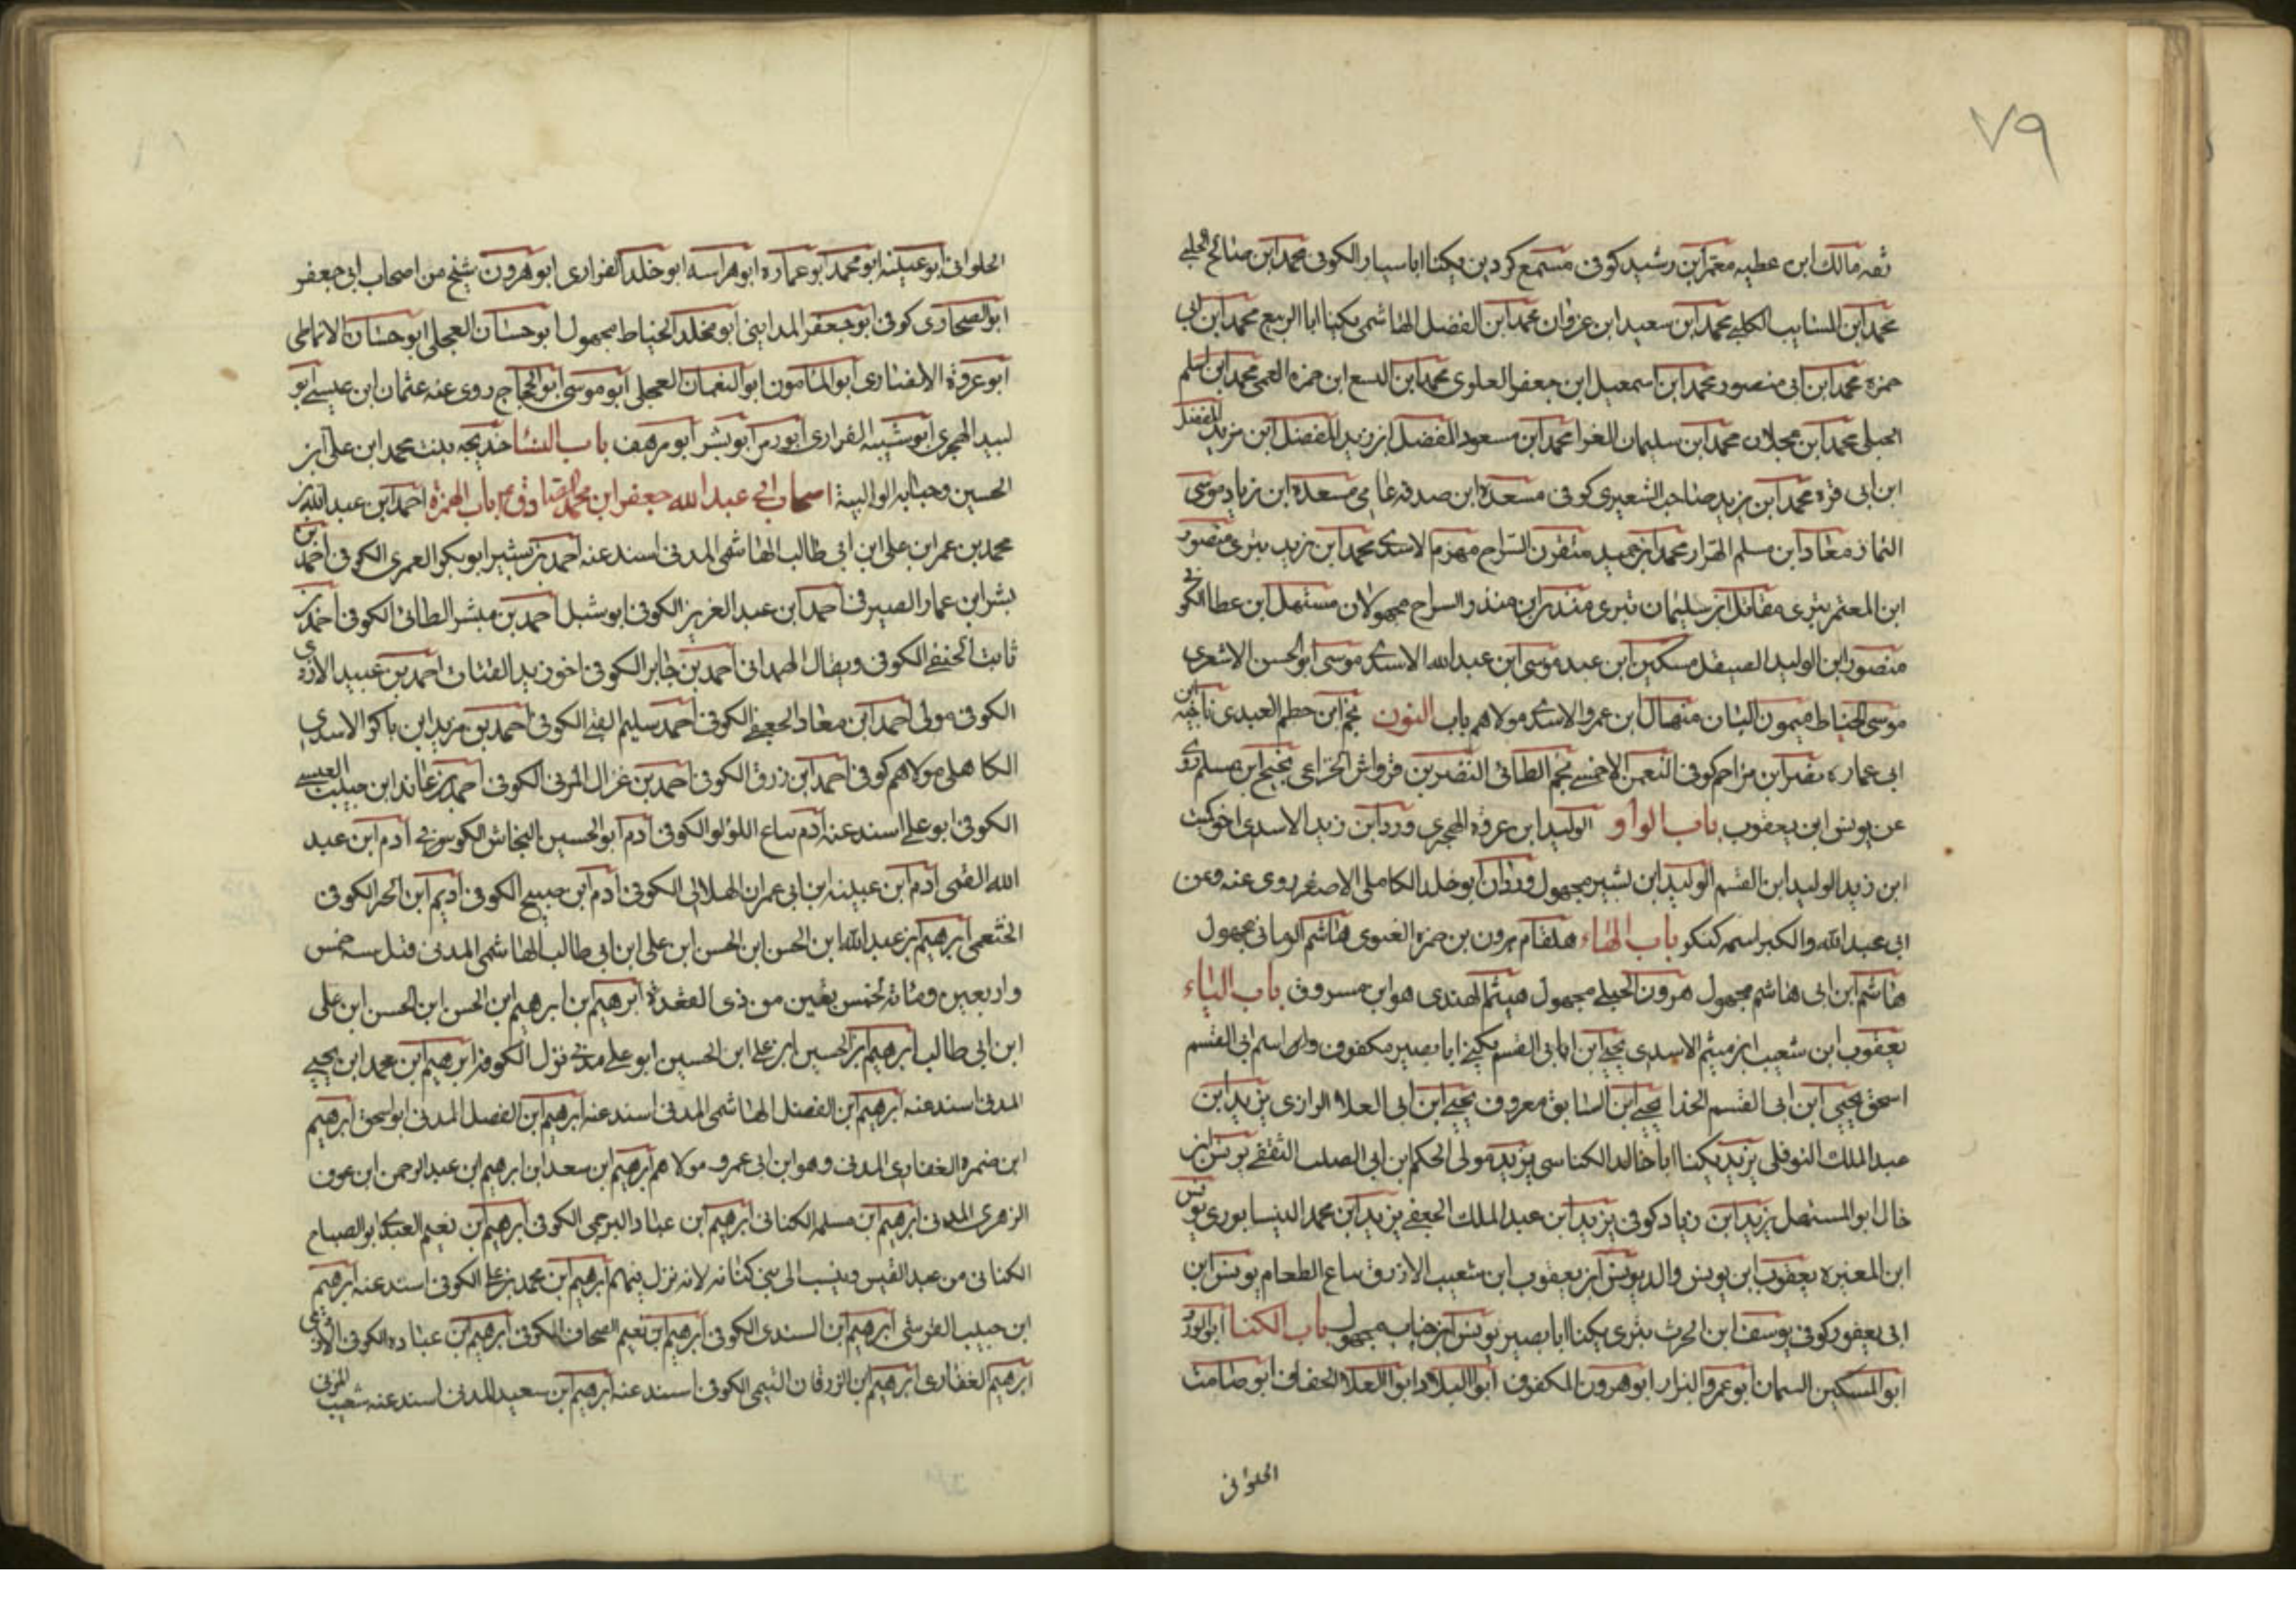 ٧٩
ثقه مالك ابن عطيه معمر ابن رشيد كوفى مسمع كردين يكنا ابا سيار الكوفى محمد ابن صالح الجبلى
محمد ابن السايب الكلبى محمد ابن سعيد ابن غزوان محمد ابن الفضل الهاشمى يكنا ابا الربيع محمد ابن ابى
حمزه محمد ابن ابى منصور محمد ابن اسمعيل ابن جعفر العلوى محمد ابن اليسع ابن حمزه القمى محمد ابن اسلم
الجبلى محمد ابن عجلان محمد ابن سليمان الفرا محمد ابن مسعود المفضل ابن زيد المفضل ابن مزيد المفضل
ابن ابى قره محمد ابن يزيد صاحب الشعيرى كوفى مسعدة ابن صدقه عامى مسعدة ابن زياد موسى
التمار معاد ابن مسلم الهرار محمد ابن حميد مثقرن السراج مهزم الاسدى محمد ابن يزيد بترى منصور
ابن المعتمر بترى مقاتل ابن سليمان بترى مندر ابن منذر السراج مجهولان مستهل ابن عطا الكوفى
منصور ابن الوليد الصيقل مسكين ابن عبد موسى ابن عبد الله الاسدى موسى ابو الحسن الاشعرى
موسى الحناط ميمون البان منهال ابن عمرو الاسدى مولاهم باب النون نجم ابن حطم العبدى ناجيه ابن
ابى عماره نصر ابن مزاحم كوفى النعمن الاحمسى نجم الطائى النضر بن قرواش الخزاعى نجيح ابن مسلم روى
عن يونس ابن يعقوب باب الواو الوليد ابن عروة الهجرى ورد ابن زيد الاسدى اخو كميت
ابن زيد الوليد ابن القسم الوليد ابن بشير مجهول وردان ابو خلد الكاملى الاصغر روى عنه وعن
ابى عبد الله والكبر اسمه كنكر باب الهاء هلقام هرون بن حمزه الغنوى هاشم الرمانى مجهول
هاشم ابن ابى هاشم مجهول هرون الجبلى مجهول هيثم الهندى هو ابن مسروق باب الياء
يعقوب ابن شعيب ابن ميثم الاسدى يحيى ابن ابى القسم يكنى ابا بصير مكفوف واسم ابى القسم
اسحق يحيى ابن ابى القسم الحذا يحيى ابن السابق معروف يحيى ابن ابى العلا الرازى يزيد ابن
عبد الملك النوفلى يزيد يكنا ابا خالد الكناسى يزيد مولى الحكم بن ابى الصلت الثقفى يونس ابن
خال ابو المستهل يزيد ابن زياد كوفى يزيد ابن عبد الملك الجعفى يزيد ابن محمد النيسابورى يونس
ابن المغيره يعقوب ابن يونس والد يونس ابن يعقوب ابن شعيب الازرق بياع الطعام يونس ابن
ابى يعفور كوفى يوسف ابن الحرث بترى يكنا ابا بصير يونس ابن خباب مجهول باب الكنا ابو الورد
ابو المسكين السمان ابو عمرو البزار ابو هرون المكفوف ابو البلاد ابو العلا الخفاف ابو صامت
الحلوانى
الحلوانى ابو عيينه ابو محمد ابو عماره ابو هراسه ابو خلد الفزارى ابو هرون شيخ من اصحاب ابى جعفر
ابو الصحارى كوفى ابو جعفر المداينى ابو مخلد الخياط مجهول ابو حسان العجلى ابو حسان الانماطى
ابو عروة الانصارى ابو المامون ابو النعمان العجلى ابو موسى ابو الحجاج روى عنه عثمان ابن عيسى ابو
لبيد الهجرى ابو شيبه الفزارى ابو رمز ابو بشر ابو مرهف باب النسا خديجه بنت محمد ابن على ابن
الحسين وحبابه الوالبية اصحاب ابى عبد الله جعفر ابن محمد الصادق باب الهمزة احمد ابن عبد الله بن
محمد بن عمر ابن على ابن ابى طالب الهاشمى المدنى اسند عنه احمد بن بشير ابو بكر العمرى الكوفى احمد بن
بشر ابن عمار الصيرفى احمد ابن عبد العزيز الكوفى ابو شبل احمد بن مبشر الطائى الكوفى احمد بن
ثابت الحنفى الكوفى ويقال الهمدانى احمد بن جابر الكوفى اخو زيد القتات احمد بن عبيد الازدى
الكوفى مولى احمد ابن معاد الجعفى الكوفى احمد سليم القبى الكوفى احمد بن مزيد ابن باكر الاسدى
الكاهلى مولاهم كوفى احمد ابن رزق الكوفى احمد بن غزال المزنى الكوفى احمد بن عائد ابن حبيب العبسى
الكوفى ابو على اسند عنه ادم بياع اللولو الكوفى ادم ابو الحسين النخاس الكوفى ادم ابن عبد
الله القمى ادم ابن عيينه ابن ابى عمران الهلالى الكوفى ادم ابن صبيح الكوفى اديم ابن الحر الكوفى
الخثعمى ابرهيم بن عبد الله ابن الحسن ابن الحسن ابن على ابن ابى طالب الهاشمى المدنى قتل سنه خمس
واربعين ومائه لخمس بقين من ذى القعدة ابرهيم بن ابرهيم ابن الحسن ابن الحسن ابن على
ابن ابى طالب ابرهيم ابن الحسين ابن على ابن الحسين ابو على مدنى نزل الكوفه ابرهيم ابن محمد ابن يحيى
المدنى اسند عنه ابرهيم ابن الفضل الهاشمى المدنى اسند عنه ابرهيم ابن الفضل المدنى ابو اسحق ابرهيم
ابن ضمره الغفارى المدنى وهو ابن ابى عمرو مولاهم ابرهيم ابن سعد ابن ابرهيم ابن عبد الرحمن ابن عوف
الزهرى المدنى ابرهيم ابن مسلمه الكنانى ابرهيم ابن عباد البرجمى الكوفى ابرهيم ابن نعيم العبدى ابو الصباح
الكنانى من عبد القيس وينسب الى بنى كنانه لانه نزل فيهم ابرهيم ابن محمد بن على الكوفى اسند عنه ابرهيم
ابن حبيب القرشى ابرهيم ابن السندى الكوفى ابرهيم ابن نعيم الصحاف الكوفى ابرهيم بن عباده الكوفى الازدى
ابرهيم الغفارى ابرهيم ابن الزبرقان التيمى الكوفى اسند عنه ابرهيم بن سعيد المدنى اسند عنه شعيب المزنى